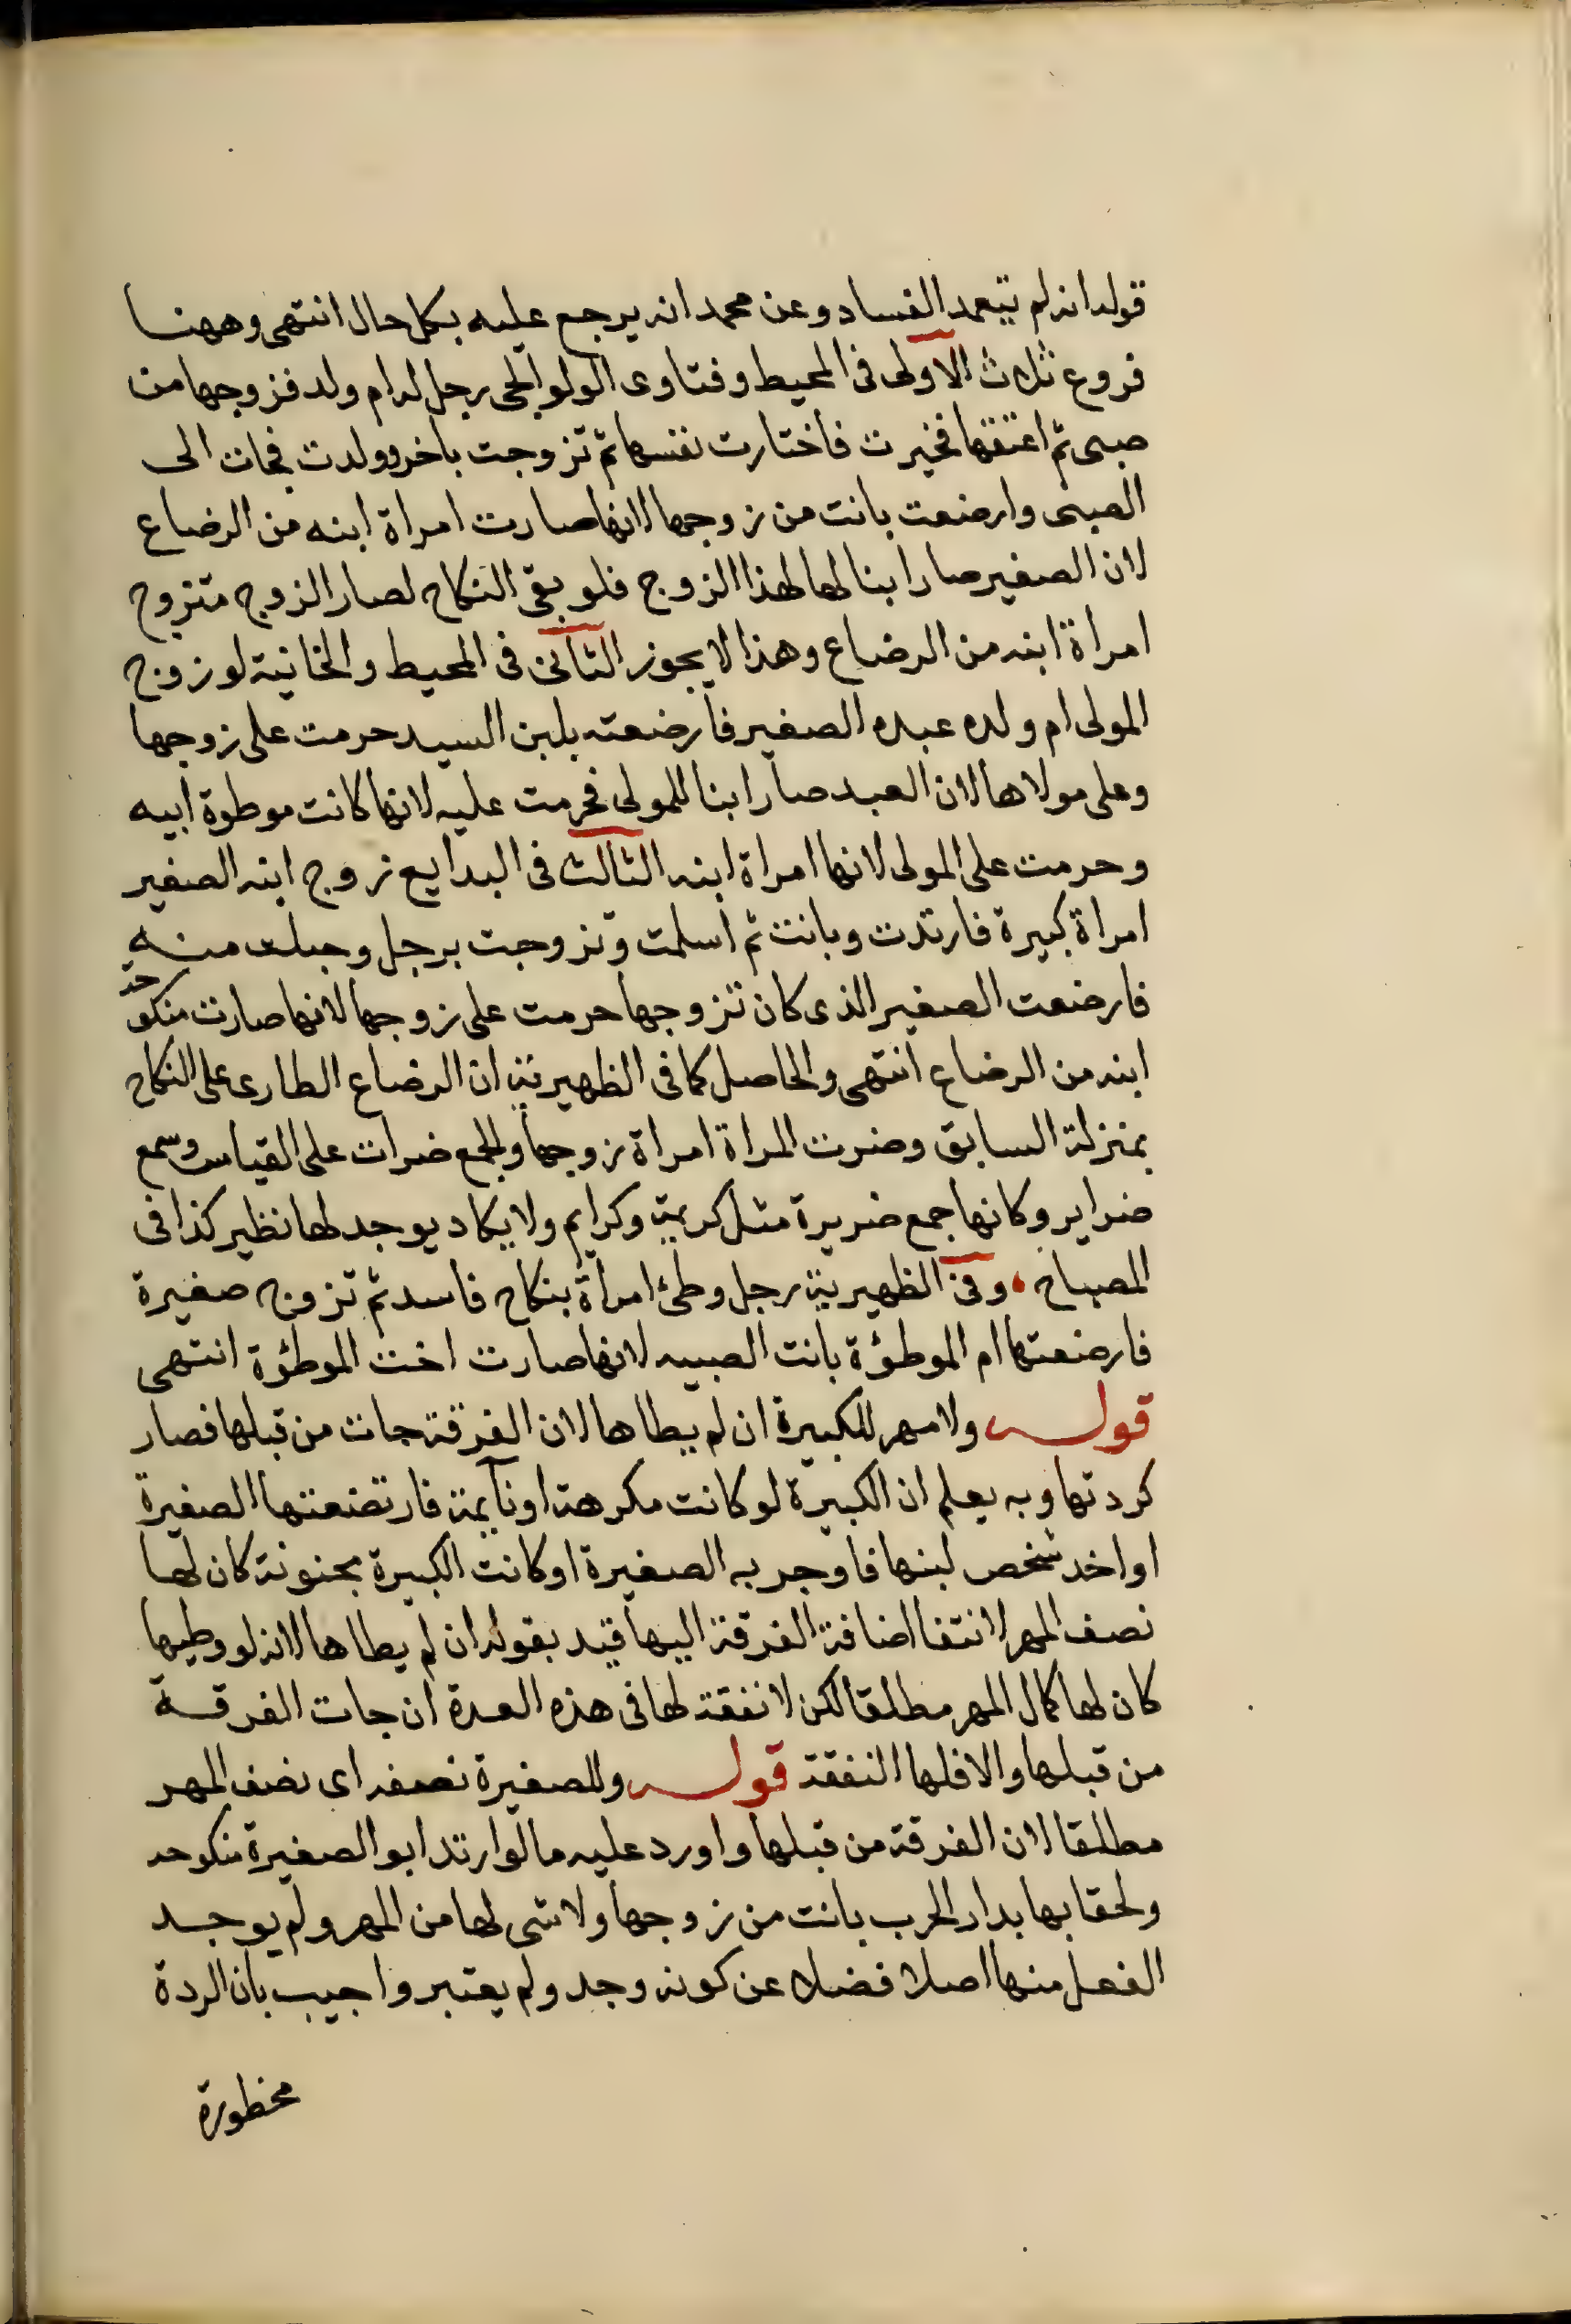 قوله انه لم يتعمد الفساد وعن محمد انه يرجع عليه بكل حال انتهى وههنا
فروع ثلاث الاولى فى المحيط وفتاوى الولوالجى رجل له ام ولد فزوجها من
صبى ثم اعتقها فخيرت فاختارت نفسها ثم تزوجت باخر وولدت فجات الى
الصبى وارضعت بانت من زوجها لانها صارت امراة ابنه من الرضاع
لان الصغير صار ابنا لها لهذا الزوج فلو بقى النكاح لصار الزوج متزوج
امراة ابنه من الرضاع وهذا لا يجوز الثانى فى المحيط والخانية لو زوج
المولى ام ولده عبده الصغير فارضعته بلبن السيد حرمت على زوجها
وعلى مولاها لان العبد صار ابنا للمولى فحرمت عليه لانها كانت موطوة ابيه
وحرمت على المولى لانها امراة ابنه الثالث فى البدايع زوج ابنه الصغير
امراة كبيرة فارتدت وبانت ثم اسلمت وتزوجت برجل وحبلت منه
فارضعت الصغير الذى كان تزوجها حرمت على زوجها لانها صارت منكوحة
ابنه من الرضاع انتهى والحاصل كما فى الظهيرية ان الرضاع الطارى على النكاح
بمنزلة السابق وضرت المراة امراة زوجها والجمع ضرات على القياس وسمع
ضراير وكانها جمع ضريرة مثل كريمة وكرايم ولا يكاد يوجد لها نظير كذا فى
المصباح، وفى الظهيرية رجل وطئ امراة بنكاح فاسد ثم تزوج صغيرة
فارضعتها ام الموطؤة بانت الصبيه لانها صارت اخت الموطؤة انتهى
قوله ولا مهر للكبيرة ان لم يطاها لان الفرقة جات من قبلها فصار
كردتها وبه يعلم ان الكبيرة لو كانت مكرهة او نايمة فارتضعتها الصغيرة
او اخد شخص لبنها فاوجر به الصغيرة او كانت الكبيرة مجنونة كان لها
نصف المهر لانتفا اضافة الفرقة اليها قيد بقوله ان لم يطاها لانه لو وطيها
كان لها كمال المهر مطلقا لكن لا نفقة لها فى هذه العدة ان جات الفرقة
من قبلها والا فلها النفقة قوله وللصغيرة نصفه اى نصف المهر
مطلقا لان الفرقة من قبلها واورد عليه ما لو ارتد ابو الصغيرة منكوحه
ولحقا بها بدار الحرب بانت من زوجها ولا شى لها من المهر ولم يوجد
الفعل منها اصلا فضلا عن كونه وجد ولم يعتبر واجيب بان الردة
محظورة